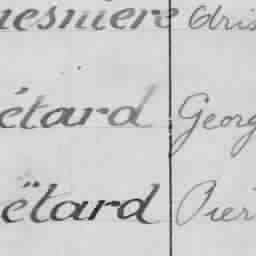 nesnière Aris
étard Georg
ëtard Pier